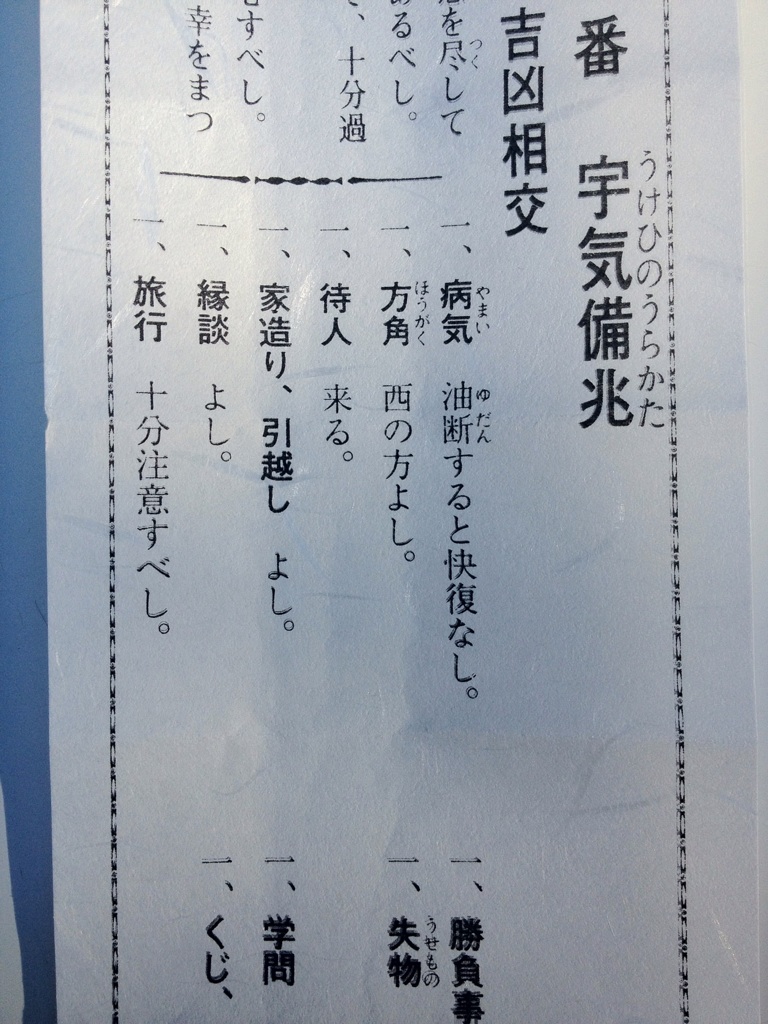 番 宇気備兆
うけひのうらかた
吉凶相交
を尽して
つく
るべし。
、十分過
すべし。
幸をまつ
一、病気 油断すると快復なし。
やまい ゆだん
一、方角 西の方よし。
ほうがく
一、待人 来る。
一、家造り、引越し よし。
一、縁談 よし。
一、旅行 十分注意すべし。
一、勝負事
一、失物
うせもの
一、学問
一、くじ、